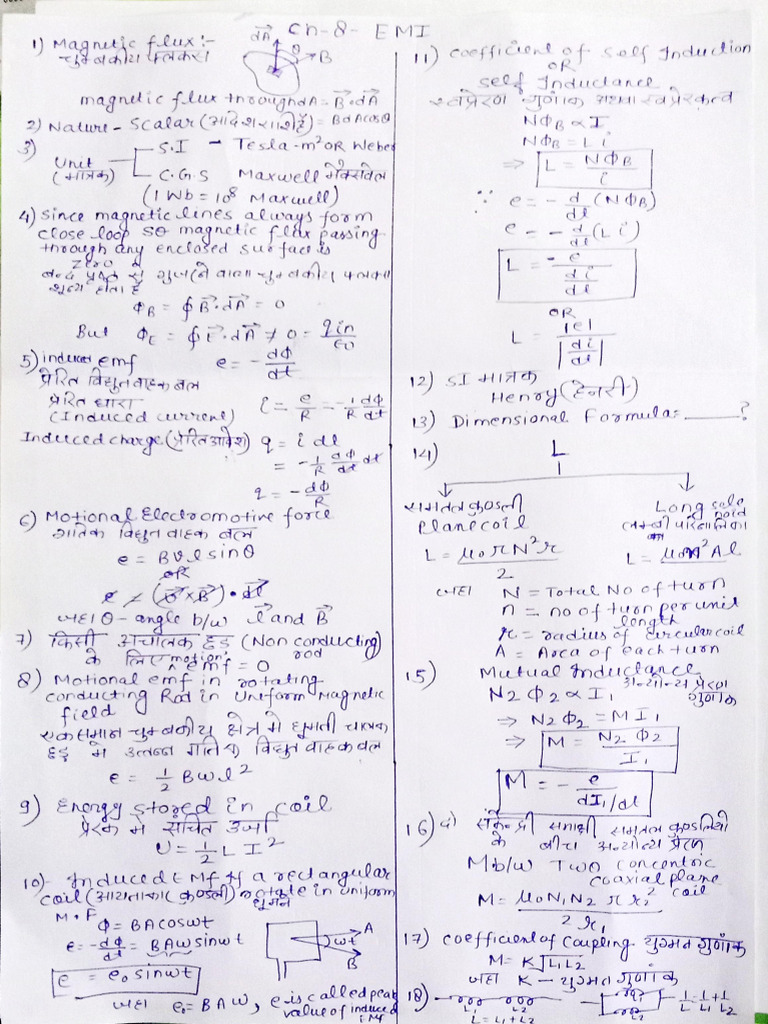 Ch-8- EMI
1) Magnetic flux :-
चुम्बकीय फ्लक्स
dA
θ
B
magnetic flux through dA = B⃗·dA⃗
= BdAcosθ
2) Nature - Scalar (अदिश राशि है)
3) Unit (मात्रक)
S.I - Tesla-m² OR Weber
C.G.S Maxwell मैक्सवेल
(1 Wb = 10⁸ Maxwell)
4) Since magnetic lines always form
close loop so magnetic flux passing
through any enclosed surface is
zero
बन्द पृष्ठ से गुजरने वाला चुम्बकीय फ्लक्स
शून्य होता है
Φ_B = ∮ B⃗·dA⃗ = 0
But Φ_E = ∮ E⃗·dA⃗ ≠ 0 = qin/ε0
5) induced emf e = -dΦ/dt
प्रेरित विद्युत वाहक बल
प्रेरित धारा
(Induced current) i = e/R = -1/R dΦ/dt
Induced charge (प्रेरित आवेश) q = i dt
= -1/R dΦ/dt dt
q = -dΦ/R
6) Motional Electromotive force
गतिक विद्युत वाहक बल
e = Bvl sinθ
OR
(v⃗×B⃗)·dl⃗
जहा θ - angle b/w l⃗ and B⃗
7) किसी अचालक छड़ (Non conducting rod)
के लिए motion emf = 0
8) Motional emf in rotating
conducting Rod in Uniform Magnetic
field
एक समान चुम्बकीय क्षेत्र मे घूमती चालक
छड़ मे उत्पन्न गतिक विद्युत वाहक बल
e = 1/2 Bωl²
9) Energy stored in coil
प्रेरक मे संचित उर्जा
U = 1/2 L I²
10) Induced EMf if a rectangular
coil (आयताकार कुण्डली) rotate in uniform
घूमने
M.F
Φ = BAcosωt
e = -dΦ/dt = BAω sinωt
e = e₀ sinωt
A
ωt
B
जहा e₀ = BAω, e is called peak
value of induced EMF
11) Coefficient of Self Induction
OR
Self Inductance
स्वप्रेरण गुणांक अथवा स्वप्रेरकत्व
NΦ_B ∝ I
NΦ_B = Li
⇒ L = NΦ_B/i
∵ e = -d/dt (NΦ_B)
e = -d/dt (Li)
L = -e/(di/dt)
OR
L = |e|/|di/dt|
12) SI मात्रक
Henry (हेनरी)
13) Dimensional Formula = ____?
14) L
समतल कुण्डली
Plane coil
L = μ₀πN²r/2
Long sole noid
लम्बी परिनालिका का
L = μ₀n²Al
जहा N = Total No of turn
n = no of turn per unit
length
r = radius of circular coil
A = Area of each turn
15) Mutual Inductance
अन्योन्य प्रेरण गुणांक
N₂Φ₂ ∝ I₁
⇒ N₂Φ₂ = MI₁
⇒ M = N₂Φ₂/I₁
M = -e/(dI₁/dt)
16) दो संकेन्द्री समाक्षी समतल कुण्डलियो
के बीच अन्योन्य प्रेरण
M b/w Two concentric
coaxial plane
coil
M = μ₀N₁N₂πr₂²/2r₁
17) Coefficient of Coupling युग्मत गुणांक
M = K√L₁L₂
जहा K - युग्मत गुणांक
18) L₁ L₂
L = L₁+L₂
L₂
1/L = 1/L₁ + 1/L₂